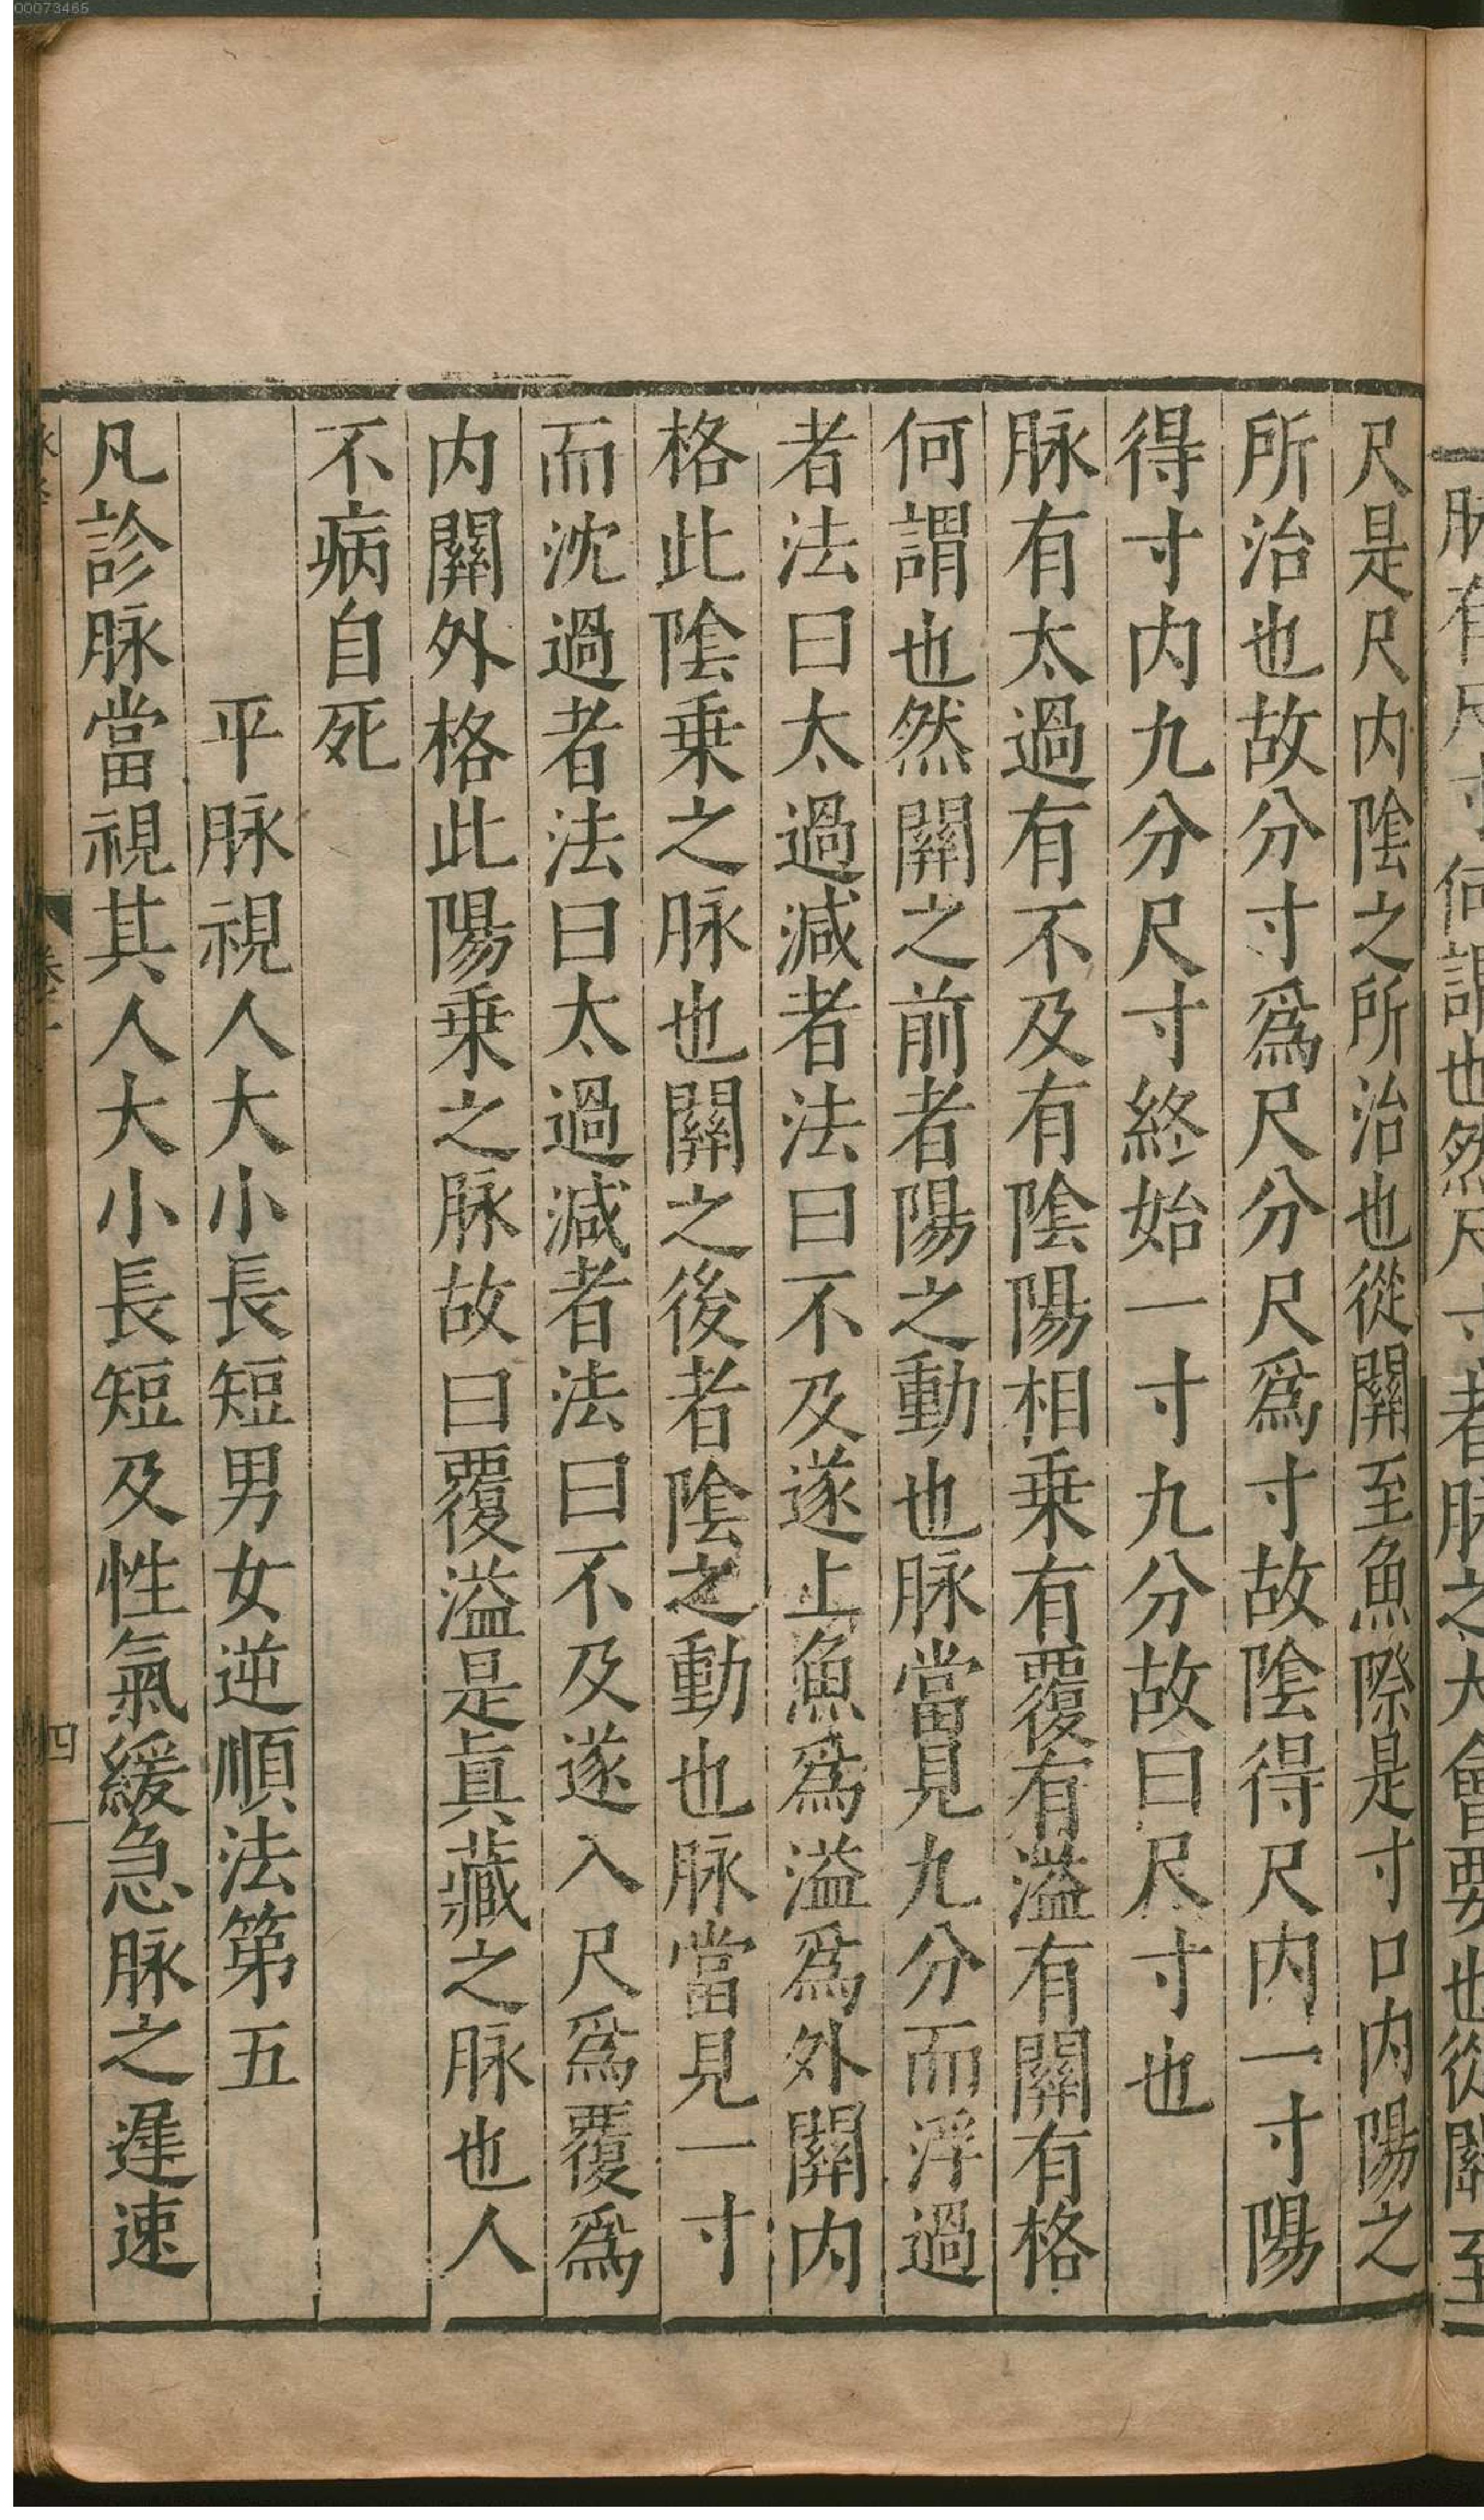 00073465
脉有尺寸何謂也然尺寸者脉之大會要也從關至
尺是尺内陰之所治也從關至魚際是寸口内陽之
所治也故分寸爲尺分尺爲寸故陰得尺内一寸陽
得寸内九分尺寸終始一寸九分故曰尺寸也
脉有太過有不及有陰陽相乗有覆有溢有關有格
何謂也然關之前者陽之動也脉當見九分而浮過
者法曰太過減者法曰不及遂上魚爲溢爲外關内
格此陰乗之脉也關之後者陰之動也脉當見一寸
而沈過者法曰太過減者法曰不及遂入尺爲覆爲
内關外格此陽乗之脉故曰覆溢是眞藏之脉也人
不病自死
平脉視人大小長短男女逆順法第五
凡診脉當視其人大小長短及性氣緩急脉之遲速
卷一
四